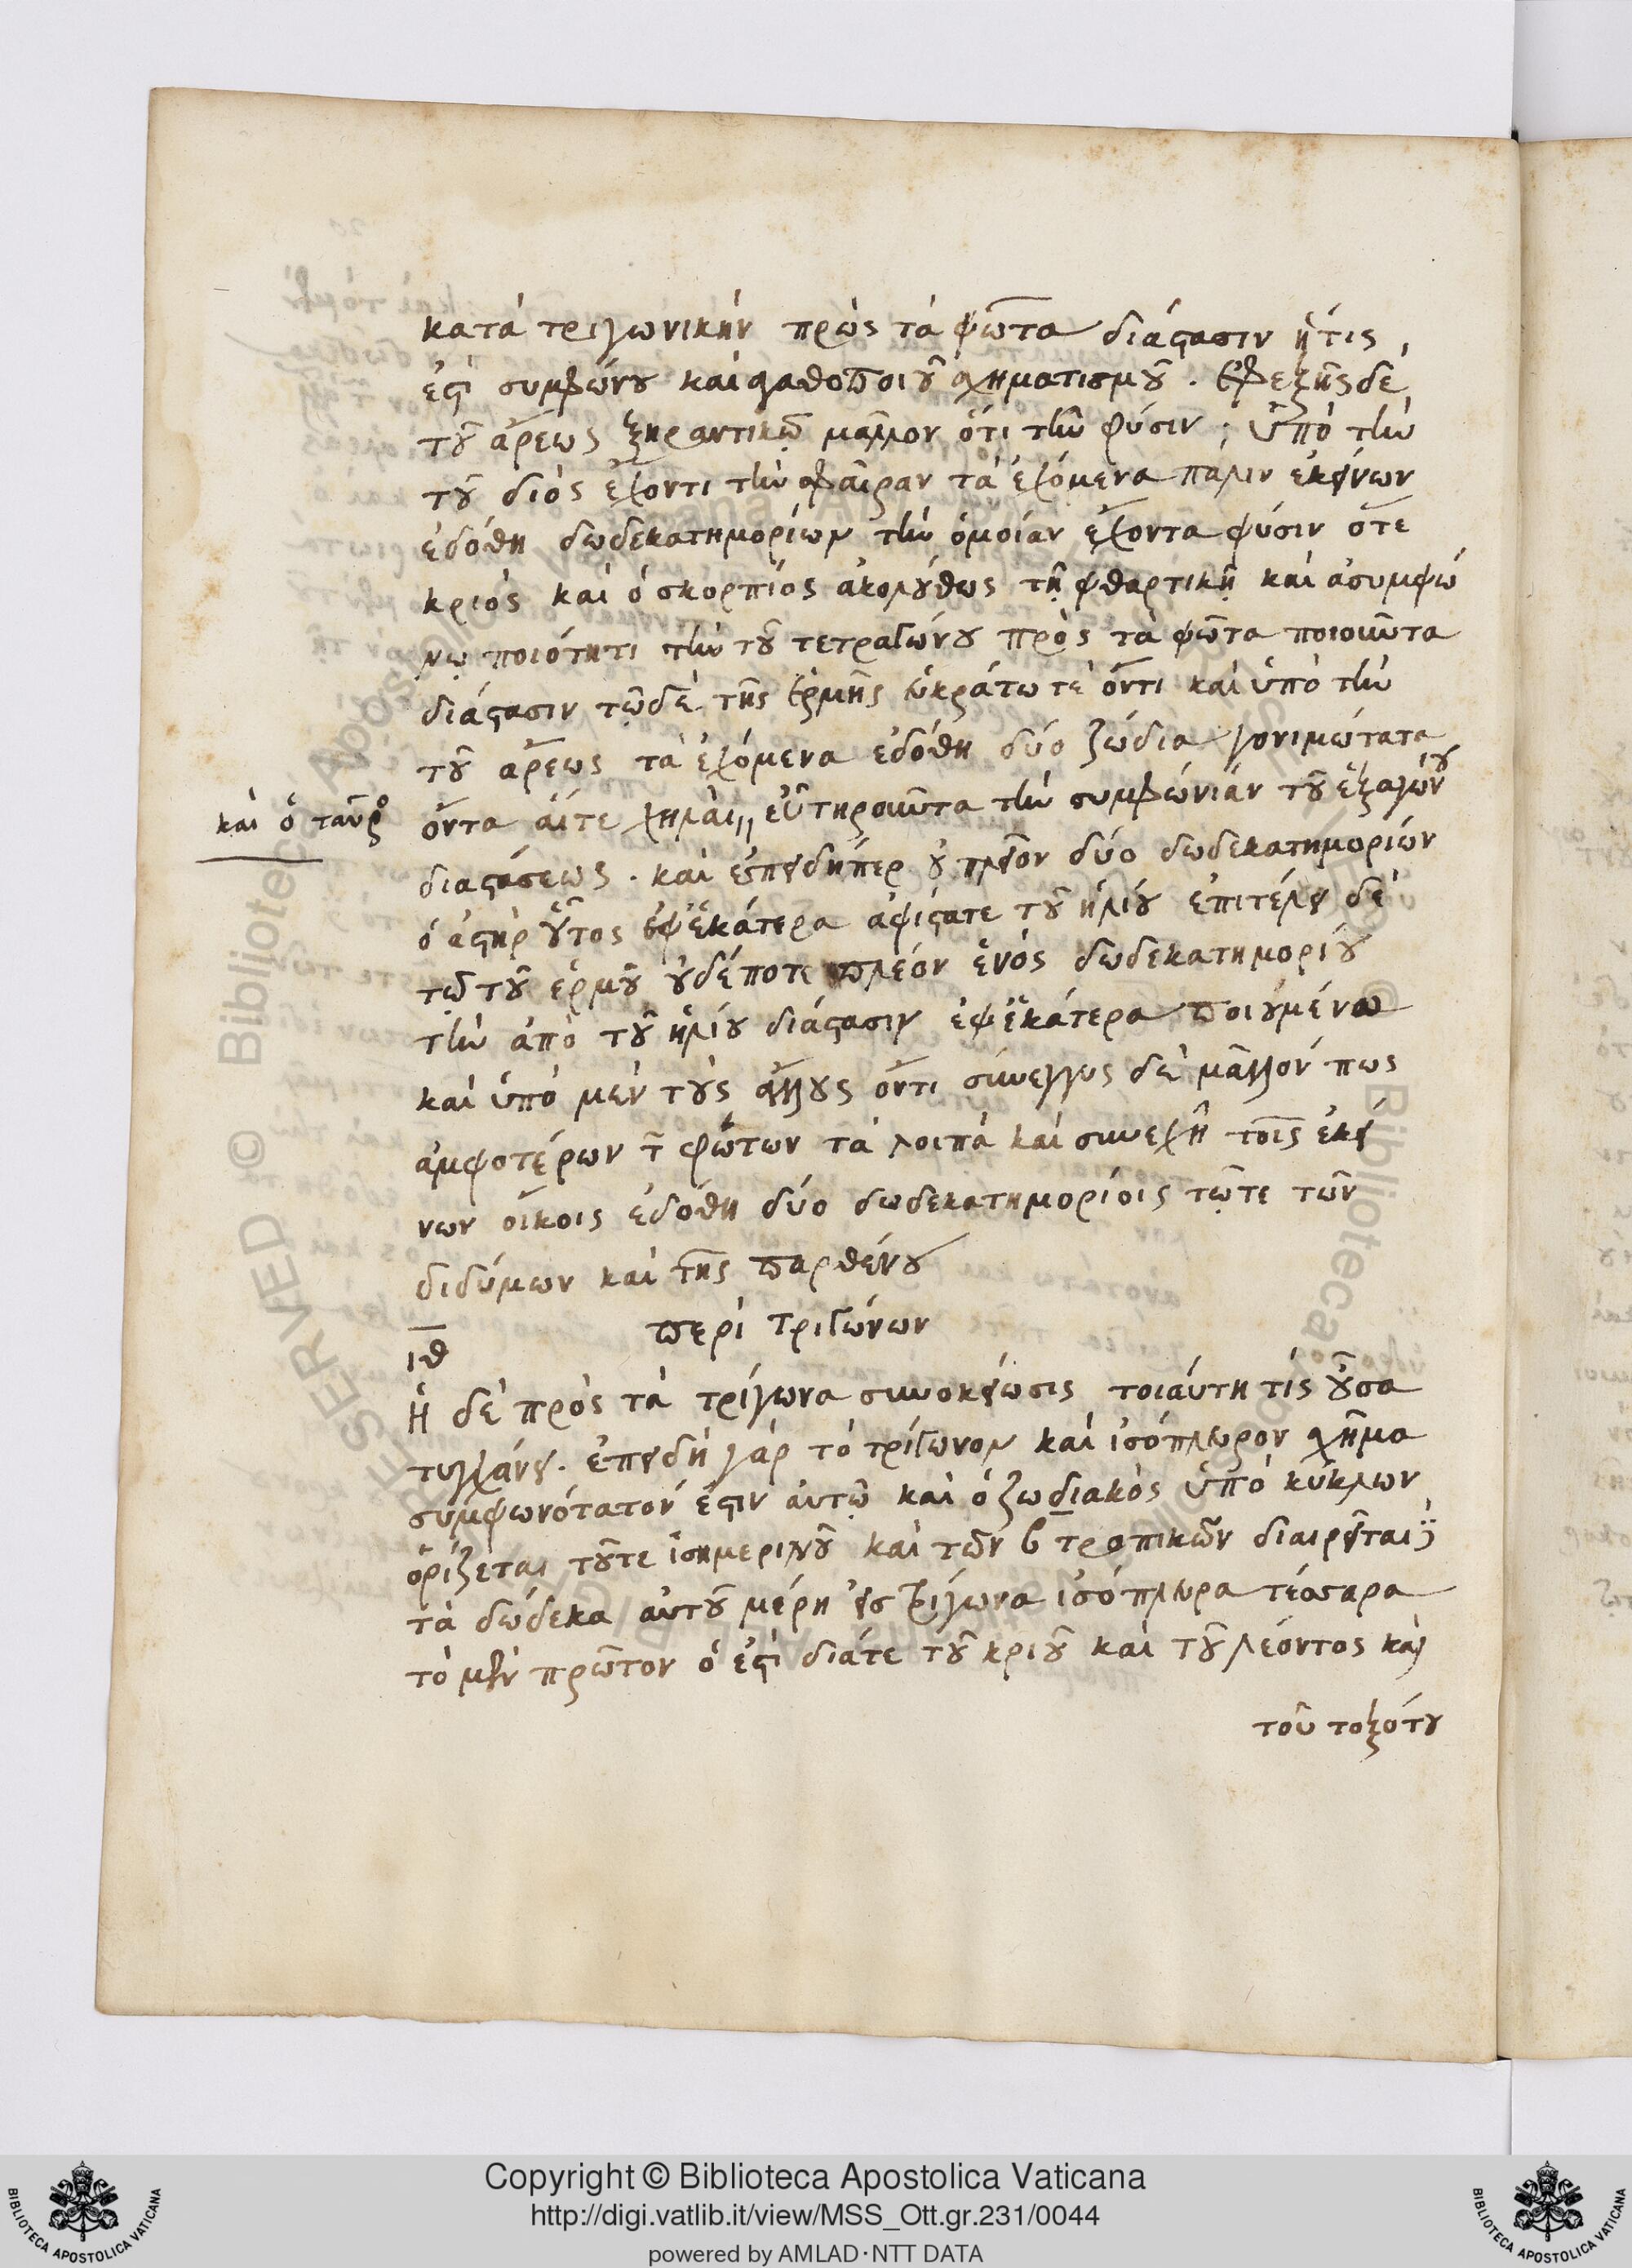 κατὰ τριγωνικὴν πρὸς τὰ φῶτα διάστασιν ἥτις
ἐστὶ συμφώνου καὶ ἀγαθοποιοῦ σχηματισμοῦ. ἐφεξῆς δὲ
τοῦ ἄρεως ξηραντικῶ μᾶλλον ὅτι τὴν φύσιν, ὑπὸ τὴν
τοῦ διὸς ἔχοντι τὴν σφαῖραν τὰ ἐχόμενα πάλιν ἐκείνων
ἐδόθη δωδεκατημορίων τὴν ὁμοίαν ἔχοντα φύσιν ὅτε
κριὸς καὶ ὁ σκορπίος ἀκολούθως τῇ φθαρτικῇ καὶ ἀσυμφώ
νῳ ποιότητι τὴν τοῦ τετραγώνου πρὸς τὰ φῶτα ποιοῦντα
διάστασιν τῷ δὲ τῆς ἑρμῆς εὐκράτω τὲ ὄντι καὶ ὑπὸ τὴν
τοῦ ἄρεως τὰ ἐχόμενα ἐδόθη δύο ζώδια γονιμώτατα
καὶ ὁ ταῦρος
ὄντα αἵτε χηλαὶ εὐτηροῦντα τὴν συμφώνιαν τοῦ ἑξαγώνου
διαστάσεως. καὶ ἐπειδήπερ οὐ πλεῖον δύο δωδεκατημορίων
ὁ ἀστὴρ οὗτος ἐφ' ἑκάτερα ἀφίστατε τοῦ ἡλίου ἐπιτέλει δὲ
τῷ τοῦ ἑρμοῦ οὐδέποτε πλέον ἑνὸς δωδεκατημορίου
τὴν ἀπὸ τοῦ ἡλίου διάστασιν ἐφ' ἑκάτερα ποιουμένω
καὶ ὑπὸ μὲν τοὺς ἄλλους ὄντι σύνεγγυς δὲ μᾶλλόν πως
ἀμφοτέρων τῶν φώτων τὰ λοιπὰ καὶ συνεχῆ τοῖς ἐκεί
νων οἴκοις ἐδόθη δύο δωδεκατημορίοις τῷτε τῶν
διδύμων καὶ τῆς παρθένου
περὶ τριγώνων
ιθ
Ἡ δὲ πρὸς τὰ τρίγωνα συνοικείωσις τοιαύτη τίς οὖσα
τυγχάνει. ἐπειδὴ γὰρ τὸ τρίγωνον καὶ ἰσόπλευρον σχῆμα
συμφωνότατόν ἐστιν αὑτῷ καὶ ὁ ζωδιακὸς ὑπὸ κύκλων
ὁρίζεται τοῦτε ἰσημερινοῦ καὶ τῶν β τροπικῶν διαιρεῖται
τὰ δώδεκα αὐτοῦ μέρη εἰς τρίγωνα ἰσόπλευρα τέσσαρα
τὸ μὲν πρῶτον ὅ ἐστι διάτε τοῦ κριοῦ καὶ τοῦ λέοντος καὶ
τοῦ τοξότου
Copyright © Biblioteca Apostolica Vaticana
http://digi.vatlib.it/view/MSS_Ott.gr.231/0044
powered by AMLAD·NTT DATA